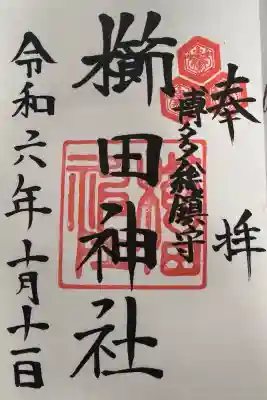 奉拝
博多総鎮守
櫛田神社
令和六年十月十一日